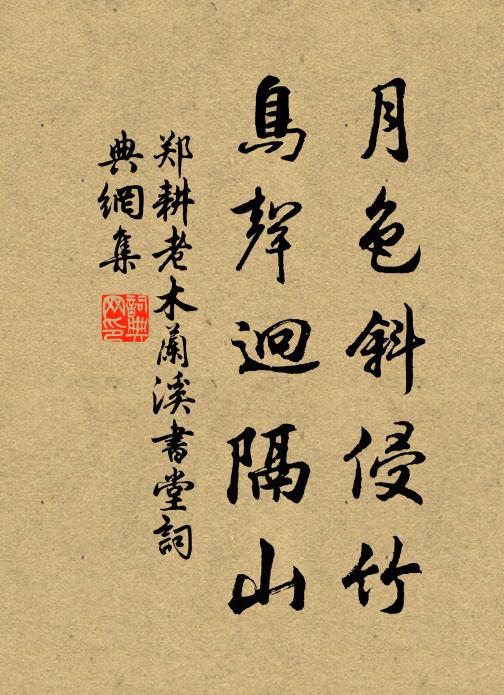 月色斜侵竹
鳥聲迥隔山
郑耕老木蘭溪書堂詞
典網集
詞典
网印